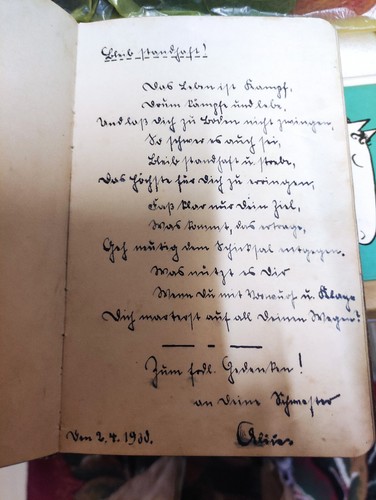 Bleib standhaft!
Das Leben ist Kampf,
Drum kämpfe und lebe,
Und laß Dich zu Boden nicht zwingen,
So schwer es auch sei,
Bleib standhaft u. strebe,
Das Höchste für Dich zu erringen,
Faß klar nur Dein Ziel,
Was kommt, das ertrage,
Geh mutig dem Schicksal entgegen.
Was nützt es Dir
Wenn Du mit Vorwurf u. Klage
Dich marterst auf all Deinen Wegen?
Zum frdl. Gedenken!
an Deine Schwester
Den 2.4.